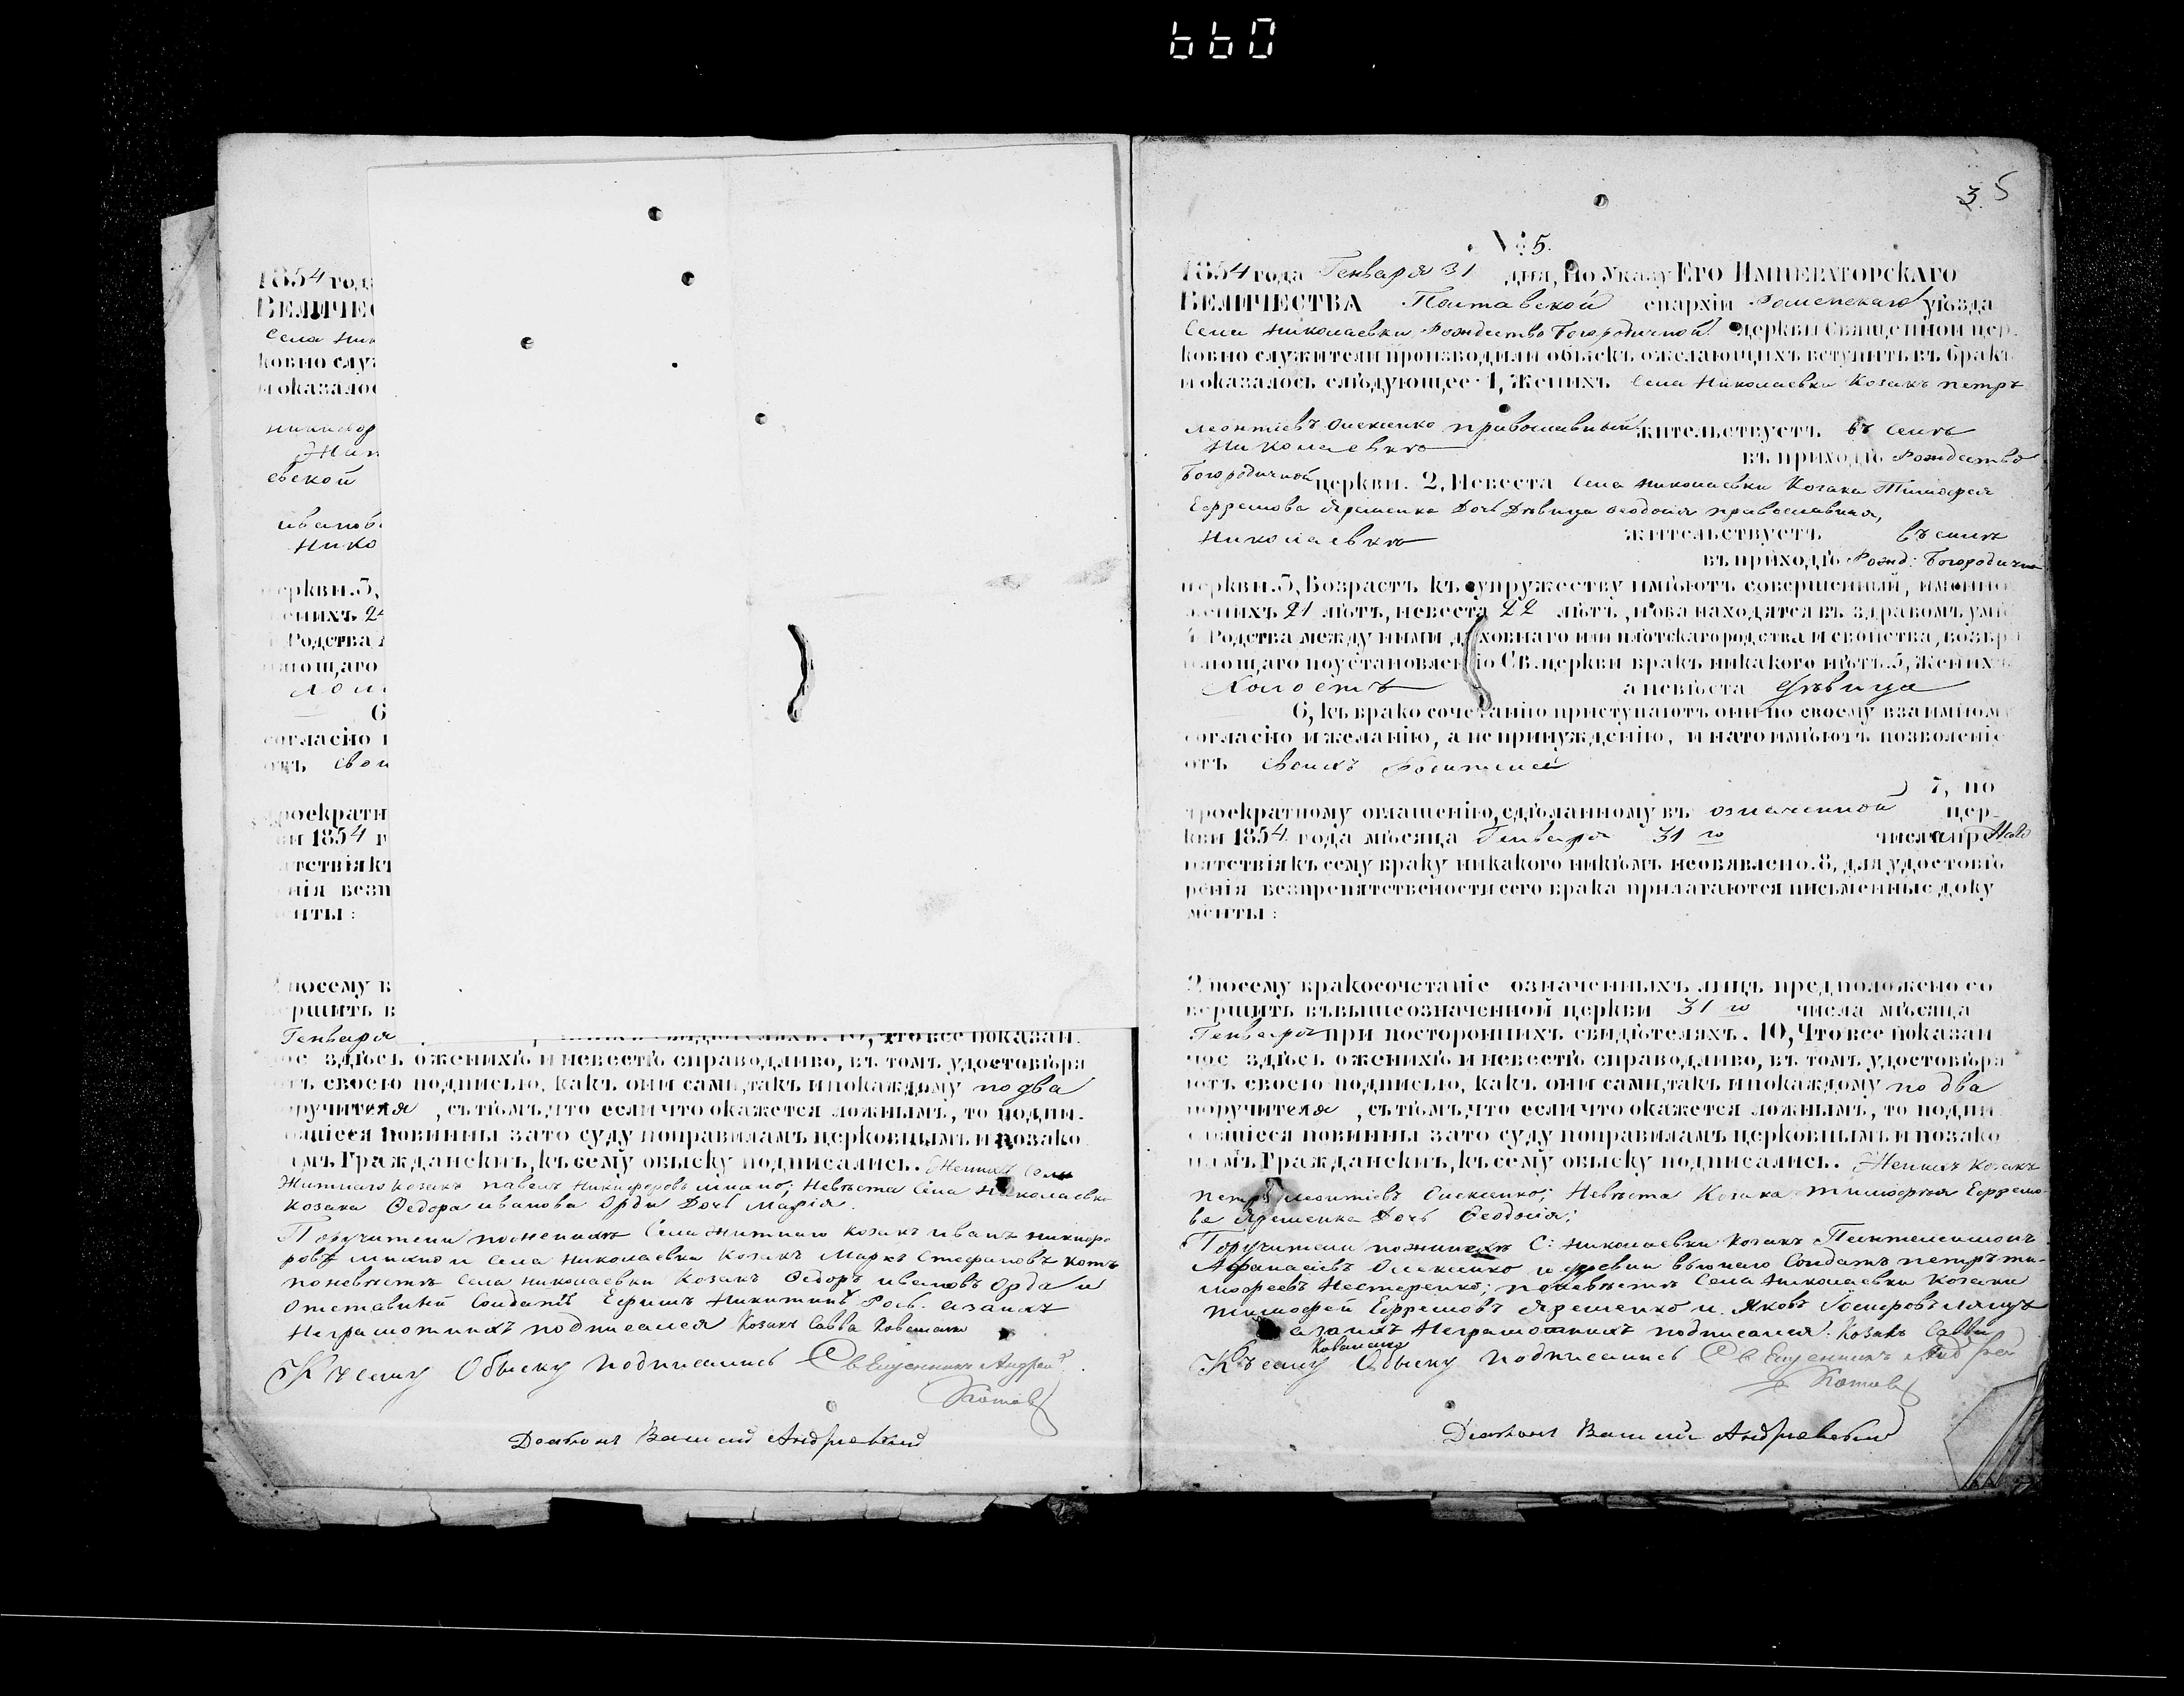 660
1854 год
ВЕЛИЧЕС
Села Ник
ковно слу
и оказалос
никифор
Жит
евской
иванов
Нико
еркви. 3,
енихъ 2
Родства
ющаго
6
согласію
отъ свои
троекратн
ви 1854 г
тствія къ
нія безп
нты:
посему в
ершить в
Генваря
10, Что все показан
ое здѣсь о женихѣ и невестѣ справодливо, въ томъ удостовѣря
тъ своею подписью, какъ они сами, такъ и по каждому по два
ручителя, съ тѣмъ, что если что окажется ложнымъ, то подпи.
вшіеся повинны за то суду по правиламъ церковнымъ и по зако
амъ Гражданскиъ, къ сему обыску подписались. Женихъ Села
Житнаго козакъ павелъ Никифоровъ; Невѣста Села Николаевки
козака Ѳедора иванова Орды Дочь Марія.
Поручители по женихѣ Села Житнаго козакъ иванъ никифо
ровъ и Села Николаевки Козакъ Марко Стефановъ котъ
по невѣстѣ Села николаевки Козакъ Ѳедоръ ивановъ Орда и
Отставный Солдатъ Ефимъ Никитинъ а за ихъ
Неграмотныхъ подписался Козакъ Савва Коваленко
Къ сему Обыску подписались Священникъ Андрей
Котовъ
Дьяконъ Василій Андріевскій
35
№ 5.
1854 года Генваря 31 дня, По Указу ЕГО ИМПЕРАТОРСКАГО
ВЕЛИЧЕСТВА Полтавской епархіи Роменскаго уѣзда
Села Николаевки Рождество Богородичной церкви Священной цер.
ковно служители производили обыскъ о желающихъ вступить въ бракъ
и оказалось слѣдующее. 1, Женихъ Села Николаевки Козакъ петръ
леонтіевъ Олексенко православный жительствуетъ въ селѣ
Николаевкѣ
въ приходѣ Рождество
Богородичной церкви. 2, Невеста Села Николаевки Козака Тимофея
Ефремова Яременка Дочь Дѣвица Ѳеодосія православная,
Николаевкѣ жительствуетъ въ селѣ
въ приходѣ Рожд: Богородичной
церкви. 3, Возрастъ къ супружеству имѣютъ совершенный, имянно
женихъ 21 лѣтъ, невеста 22 лѣтъ, и оба находятся въ здравомъ умѣ
4 Родства между ними духовнаго или плотскаго родства и свойства, возбр
няющаго по установленію Св. церкви бракъ никакого нѣтъ. 5, Женихъ
Холостъ а невѣста Дѣвица
6, къ брако сочетанію приступаютъ они по своему взаимному
согласію и желанію, а не принужденію, и на то имѣютъ позволеніе
отъ своихъ родителей
7, по
троекратному оглашенію, сдѣланному въ означенной цер-
кви 1854 года мѣсяца Генваря 31 го числа препя
пятствія къ сему браку никакого никѣмъ не объявлено. 8, для удостовѣ
ренія безпрепятствености сего брака прилагаются письменные доку
менты:
9 посему бракосочетаніе означенныхъ лицъ предположено со
вершить въ вышеозначенной церкви 31 го числа мѣсяца
Генваря при постороннихъ свидѣтеляхъ. 10, Что все показан
ное здѣсь о женихѣ и невестѣ справодливо, въ томъ удостовѣря
ютъ своею подписью, какъ они сами, такъ и по каждому по два
поручителя, съ тѣмъ, что если что окажется ложнымъ, то подпи
савшіеся повинны за то суду по правиламъ церковнымъ и по зако
намъ Гражданскиъ, къ сему обыску подписались. Женихъ Козакъ
петръ леонтіевъ Олексенко; Невѣста Козака тимофея Ефремо-
ва Яременка Дочь Ѳеодосія;
Поручители по женихѣ С: Николаевки Козакъ Пантелеимонъ
Афанасіевъ Олексенко и деревни вьюнаго Солдатъ петръ ти-
мофеевъ Нестеренко; по невѣстѣ Села Николаевки козаки
тимофей Ефремовъ Яременко и Яковъ
а за ихъ Неграмотныхъ подписался. Козакъ Савва
Коваленко
Къ сему Обыску подписались Священникъ Андрей
Котовъ
Дьяконъ Василій Андріевскій